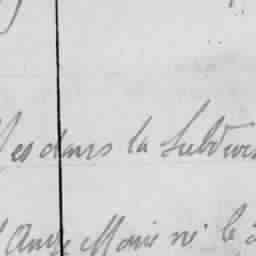 es dans la Subdivis
Marie né le